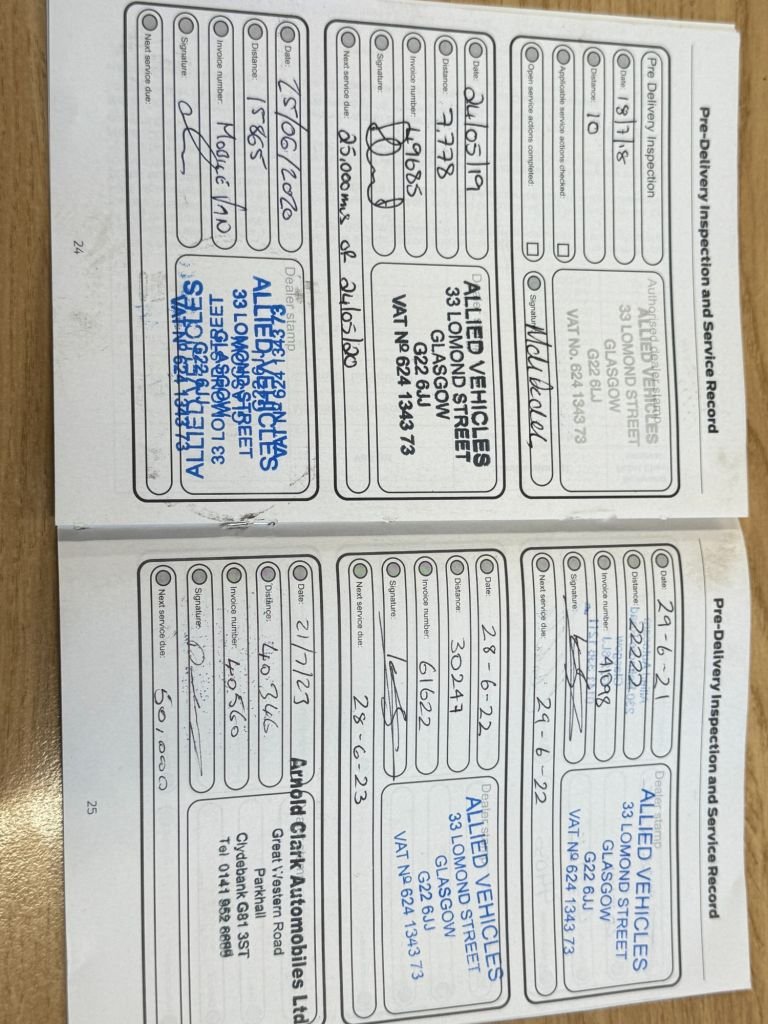 Pre-Delivery Inspection and Service Record
Pre Delivery Inspection
Date: 18/7/18
Distance: 10
Applicable service actions checked:
Open service actions completed:
Authorised dealer stamp
ALLIED VEHICLES
33 LOMOND STREET
GLASGOW
G22 6LJ
VAT No. 624 1343 73
Signature:
Date: 24/05/19
Distance: 7,778
Invoice number: 49685
Signature:
Next service due: 25,000mls or 24/05/20
ALLIED VEHICLES
33 LOMOND STREET
GLASGOW
G22 6JJ
VAT Nº 624 1343 73
Date: 25/06/2020
Distance: 15865
Invoice number:
Signature:
Next service due:
Dealer stamp
ALLIED VEHICLES
33 LOMOND STREET
GLASGOW
G22 6JJ
VAT Nº 624 1343 73
24
Pre-Delivery Inspection and Service Record
Date: 29-6-21
Distance: 22222
Invoice number: 41098
Signature:
Next service due: 29-6-22
Dealer stamp
ALLIED VEHICLES
33 LOMOND STREET
GLASGOW
G22 6JJ
VAT Nº 624 1343 73
Date: 28-6-22
Distance: 30247
Invoice number: 61622
Signature:
Next service due: 28-6-23
Dealer stamp
ALLIED VEHICLES
33 LOMOND STREET
GLASGOW
G22 6JJ
VAT Nº 624 1343 73
Date: 21/7/23
Distance: 40346
Invoice number: 40560
Signature:
Next service due: 50,000
Arnold Clark Automobiles Ltd
Great Western Road
Parkhall
Clydebank G81 3ST
Tel 0141 952
25